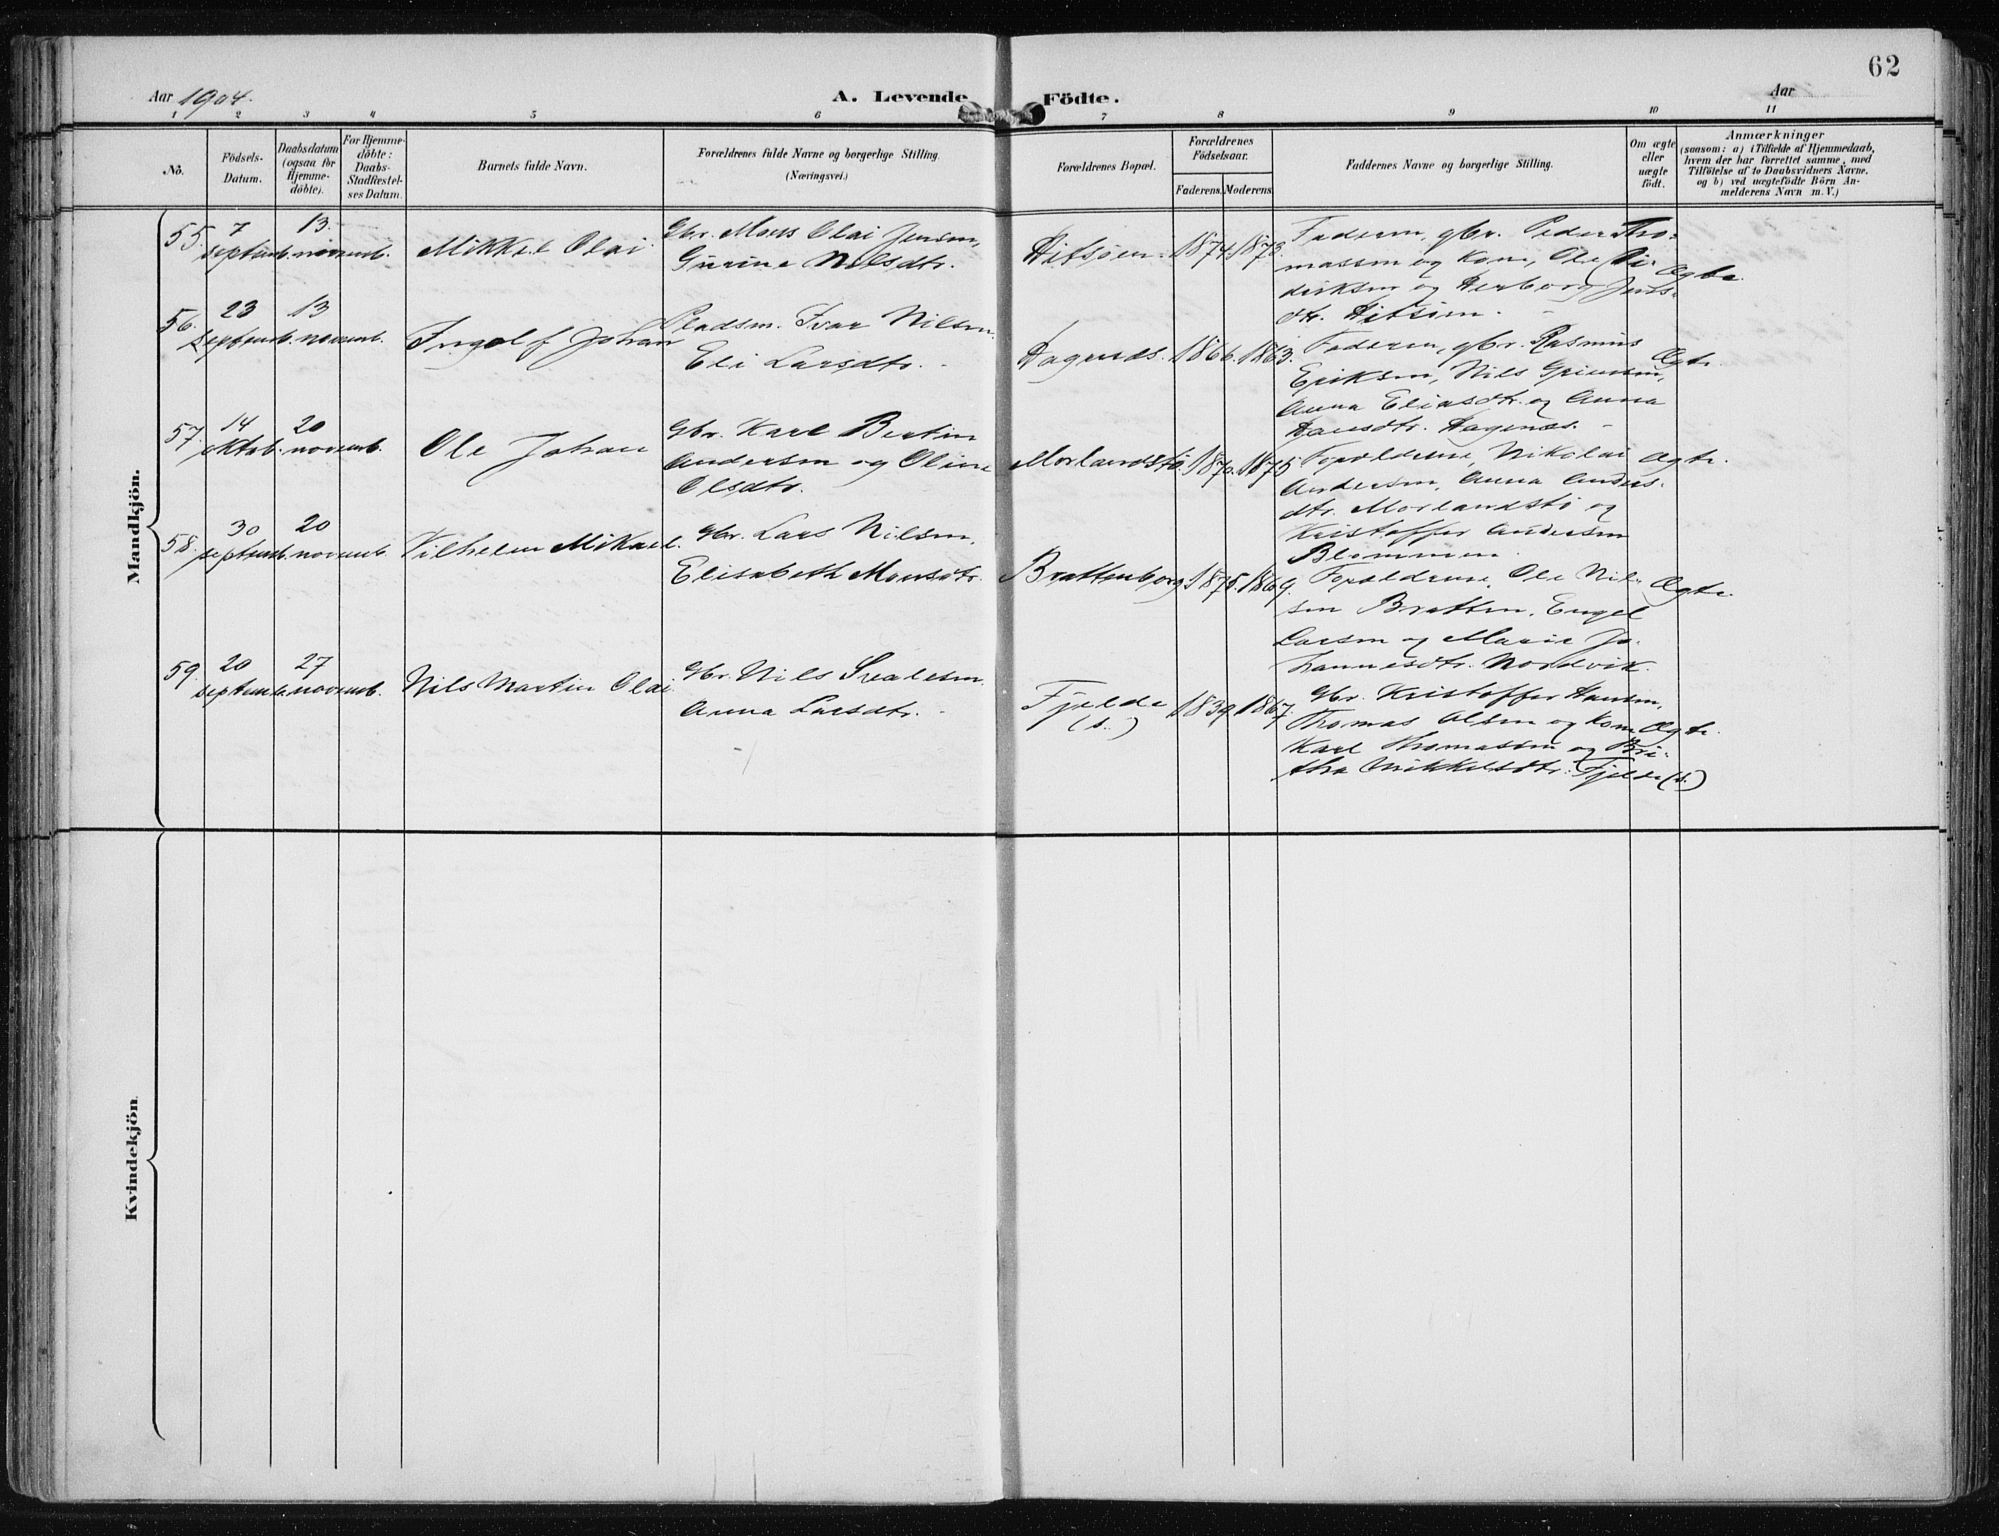 62
Aar 1904.
A. Levende Födte.
Aar
1 2 3 4 5 6 7 8 9 10 11
No.
Födsels-
Datum.
Daabsdatum
(ogsaa for
Hjemme-
döbte).
For Hjemme-
döbte:
Daabs-
Stadfæstel-
ses Datum.
Barnets fulde Navn.
Forældrenes fulde Navne og borgerlige Stilling.
(Næringsvei.)
Forældrenes Bopæl.
Forældrenes
Födselsaar.
Faderens. Moderens.
Faddernes Navne og borgerlige Stilling.
Om ægte
eller
uægte
födt.
Anmærkninger
(saasom: a) i Tilfælde af Hjemmedaab,
hvem der har forrettet samme, med
Tilföielse af to Daabsvidners Navne,
og b) ved uægtefödte Börn An-
melderens Navn m. V.)
Mandkjön.
55.
7
septemb.
13.
novemb.
Mikkel Olai.
Gbr. Mons Olai Jensen,
Gurine Nilsdtr.
1874. 1873.
Faderen, gbr. Peder Tho-
massen og Kone, Ole Di-
driksen og Herborg Jens-
dtr.
Ægte.
56.
23
septemb.
13
novemb.
Ingolf Johan
Pladsm. Ivar Nilsen.
Eli Larsdtr.
Hagenæs. 1866. 1863.
Faderen, gbr. Rasmus
Eriksen, Nils
Anna Eliasdtr. og Anna
Hansdtr. Hagenæs.
Ægte.
57.
14
oktob.
20
novemb.
Ole Johan
Gbr. Karl Bertin
Andersen og Oline
Olsdtr.
Morlandstø 1870. 1875.
Forældrene, Nikolai
Andersen, Anna Anders-
dtr. Morlandstø og
Kristoffer Andersen
Blommen.
Ægte.
58.
30
septemb.
20
novemb.
Vilhelm Mikael.
Gbr. Lars Nilsen,
Elisabeth Monsdtr.
Brattenborg 1875. 1869.
Forældrene, Ole Nil-
sen Bratten, Engel
Larsen og Marie Jo-
hannesdtr. Nordvik.
Ægte.
59.
20
septemb.
27
novemb.
Nils Martin Olai.
Gbr. Nils
Anna Larsdtr.
Fjelde
(s.)
1839. 1867.
Gbr. Kristoffer Hansen,
Thomas Olsen og Kone
Karl Thomassen og Bri-
tha Mikkelsdtr. Fjelde (s.)
Ægte.
Kvindekjön